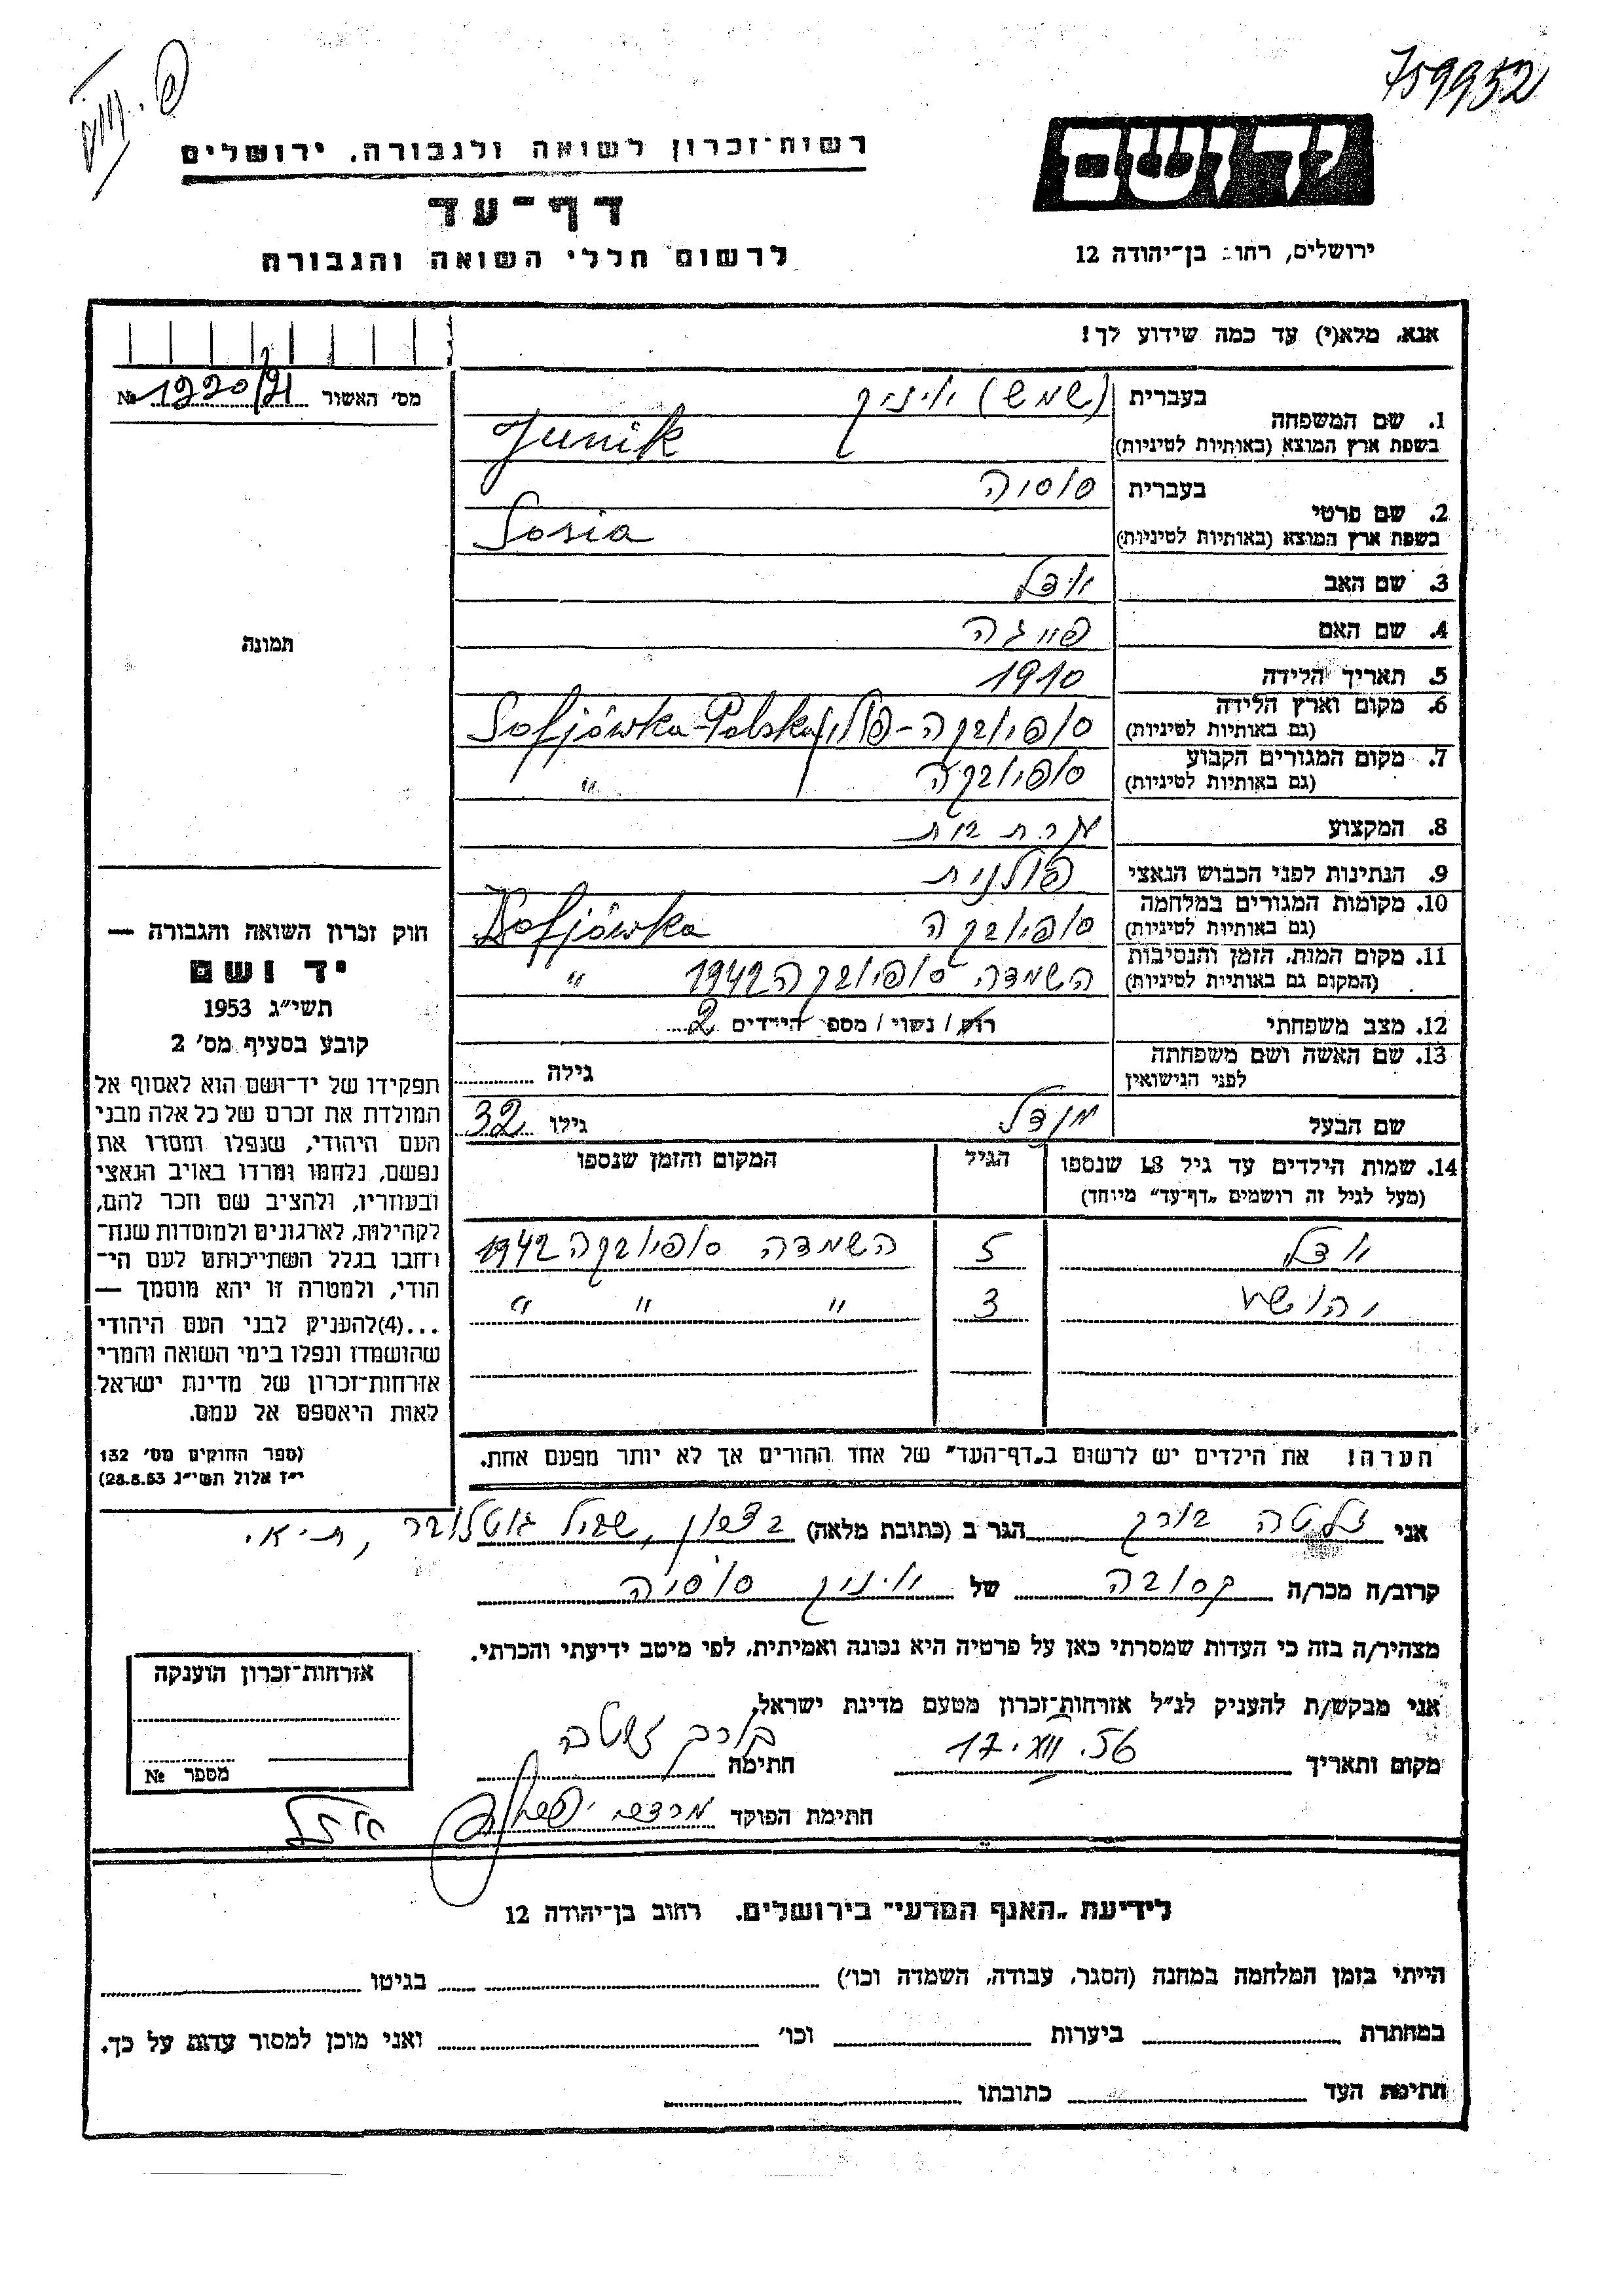 759952
יד ושם
רשות־זכרון לשואה ולגבורה, ירושלים
דף־עד
לרשום חללי השואה והגבורה
ירושלים, רחוב בן־יהודה 12
אנא, מלא(י) עד כמה שידוע לך!
מס' האשור № 1220/21
1. שם המשפחה בעברית (שמש) יוניק
בשפת ארץ המוצא (באותיות לטיניות) Junik
2. שם פרטי בעברית סוסיה
בשפת ארץ המוצא (באותיות לטיניות) Sosia
3. שם האב יודל
4. שם האם פייגה
5. תאריך הלידה 1910
6. מקום וארץ הלידה (גם באותיות לטיניות) סופיובקה - פולין Sofjówka-Polska
7. מקום המגורים הקבוע (גם באותיות לטיניות) סופיובקה "
8. המקצוע עקרת בית
9. הנתינות לפני הכבוש הנאצי פולנית
10. מקומות המגורים במלחמה (גם באותיות לטיניות) סופיובקה Sofjówka
11. מקום המות, הזמן והנסיבות (המקום גם באותיות לטיניות) השמדה סופיובקה 1942 "
12. מצב משפחתי רוק / נשוי / מספר הילדים 2
13. שם האשה ושם משפחתה לפני הנישואין גילה
שם הבעל מנדל גילו 32
14. שמות הילדים עד גיל 18 שנספו הגיל המקום והזמן שנספו
(מעל לגיל זה רושמים "דף־עד" מיוחד)
יודל 5 השמדה סופיובקה 1942
יהושע 3 " " "
הערה! את הילדים יש לרשום ב"דף־העד" של אחד ההורים אך לא יותר מפעם אחת.
תמונה
חוק זכרון השואה והגבורה —
יד ושם
תשי"ג 1953
קובע בסעיף מס' 2
תפקידו של יד־ושם הוא לאסוף אל
המולדת את זכרם של כל אלה מבני
העם היהודי, שנפלו ומסרו את
נפשם, נלחמו ומרדו באויב הנאצי
ובעוזריו, ולהציב שם וזכר להם,
לקהילות, לארגונים ולמוסדות שנח־
רחבו בגלל השתייכותם לעם הי־
הודי, ולמטרה זו יהא מוסמך —
...(4) להעניק לבני העם היהודי
שהושמדו ונפלו בימי השואה והמרי
אזרחות־זכרון של מדינת ישראל
לאות היאספם אל עמם.
(ספר החוקים מס' 132
י"ז אלול תשי"ג 28.8.53)
אני זלטה בורק הגר ב (כתובת מלאה) שביל גוטלובר, ת"א
קרוב/ה מכר/ה קרובה של יוניק סוסיה
מצהיר/ה בזה כי העדות שמסרתי כאן על פרטיה היא נכונה ואמיתית, לפי מיטב ידיעתי והכרתי.
אני מבקש/ת להעניק לנ"ל אזרחות־זכרון מטעם מדינת ישראל.
מקום ותאריך חתימה בורק זלטה
חתימת הפוקד
אזרחות־זכרון הוענקה
מספר №
לידיעת "האגף המדעי" בירושלים, רחוב בן־יהודה 12
הייתי בזמן המלחמה במחנה (הסגר, עבודה, השמדה וכו') בגיטו
במחתרת ביערות וכו' ואני מוכן למסור עדות על כך.
חתימת העד כתובתו